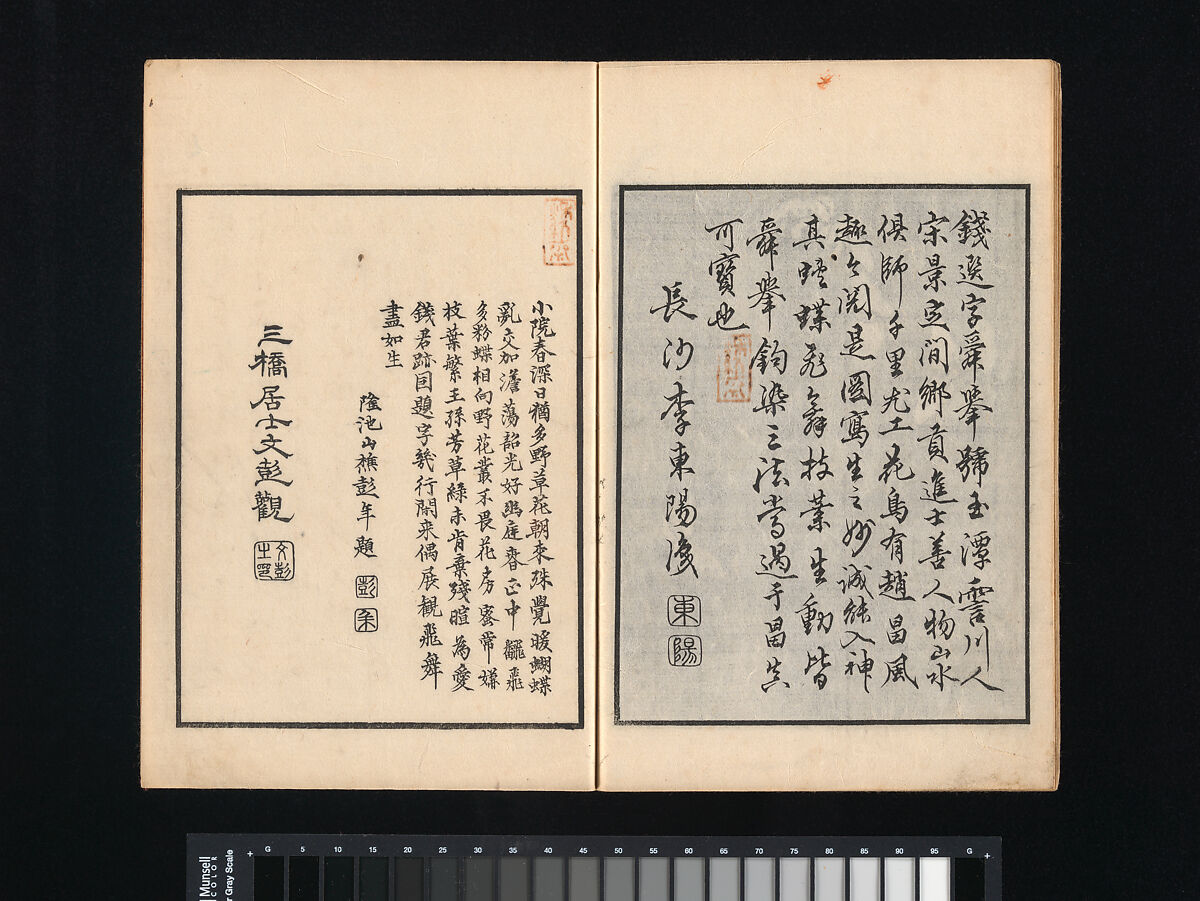 錢選字舜舉號玉潭霅川人
宋景定間鄉貢進士善人物山水
俱師千里尤工花鳥有趙昌風
趣今閱是圖寫生之妙誠能入神
其蛺蝶飛舞枝葉生動皆
舜舉鈎染之法當過于昌真
可寶也
長沙李東陽
東陽
小院春深日猶多野草花朝來殊覺暖蝴蝶
亂交加澹蕩韶光好幽庭春正中飛
多粉蝶相向野花叢不畏花房密常嫌
枝葉繁王孫芳草綠未肯棄殘暄為愛
錢君跡因題字幾行閒來偶展觀飛舞
盡如生
隆池山樵彭年題
彭
年
三橋居士文彭觀
文彭
之印
Munsell
COLOR
Gray Scale
G 5 10 15 20 25 30 35 40 45 50 55 60 65 70 75 80 85 90 95 G